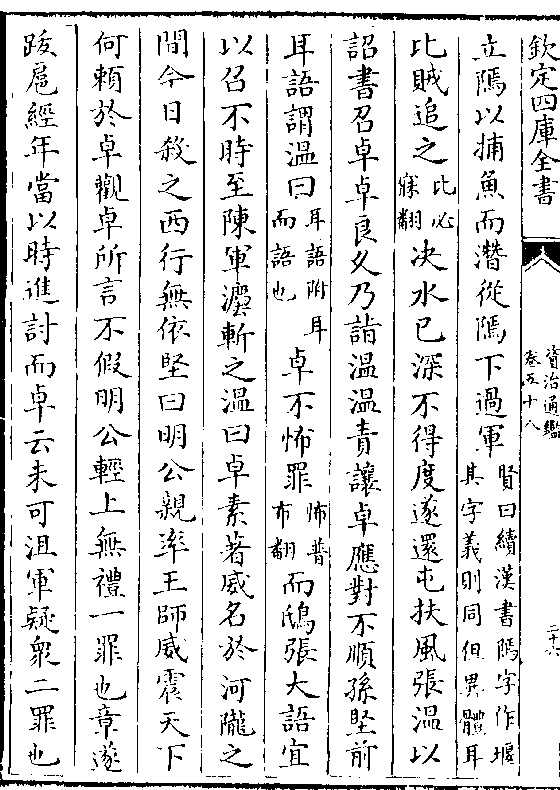 欽定四庫全書
資治通鑑
卷五十八
二十六
立隖以捕魚而潛從隖下過軍賢曰續漢書隖字作堰其字義則同但異體耳
比賊追之比必寐翻决水已深不得度遂還屯扶風張溫以
詔書召卓卓良久乃詣溫溫責讓卓應對不順孫堅前
耳語謂溫曰耳語附耳而語也卓不怖罪怖普布翻而鴟張大語宜
以召不時至陳軍灋斬之溫曰卓素著威名於河隴之
間今日殺之西行無依堅曰明公親率王師威震天下
何賴於卓觀卓所言不假明公輕上無禮一罪也章遂
跋扈經年當以時進討而卓云未可沮軍疑衆二罪也